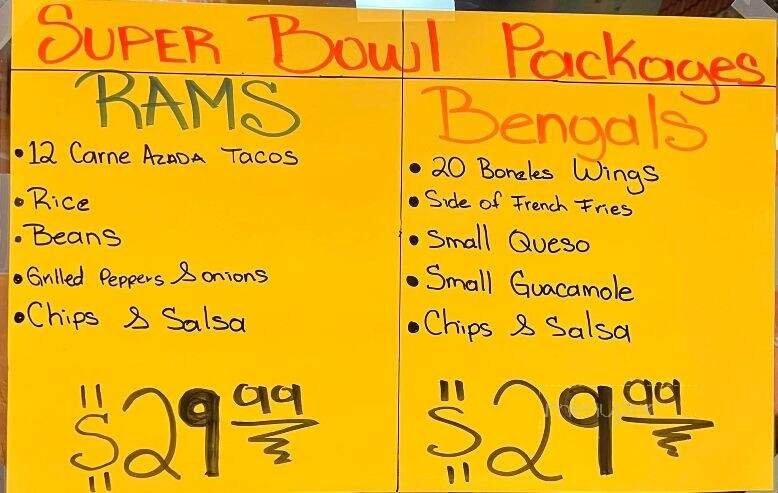 Super Bowl Packages
RAMS
• 12 Carne AZADA Tacos
• Rice
• Beans
• Grilled Peppers & onions
• Chips & Salsa
$29.99
Bengals
• 20 Boneles Wings
• Side of French Fries
• Small Queso
• Small Guacamole
• Chips & Salsa
$29.99